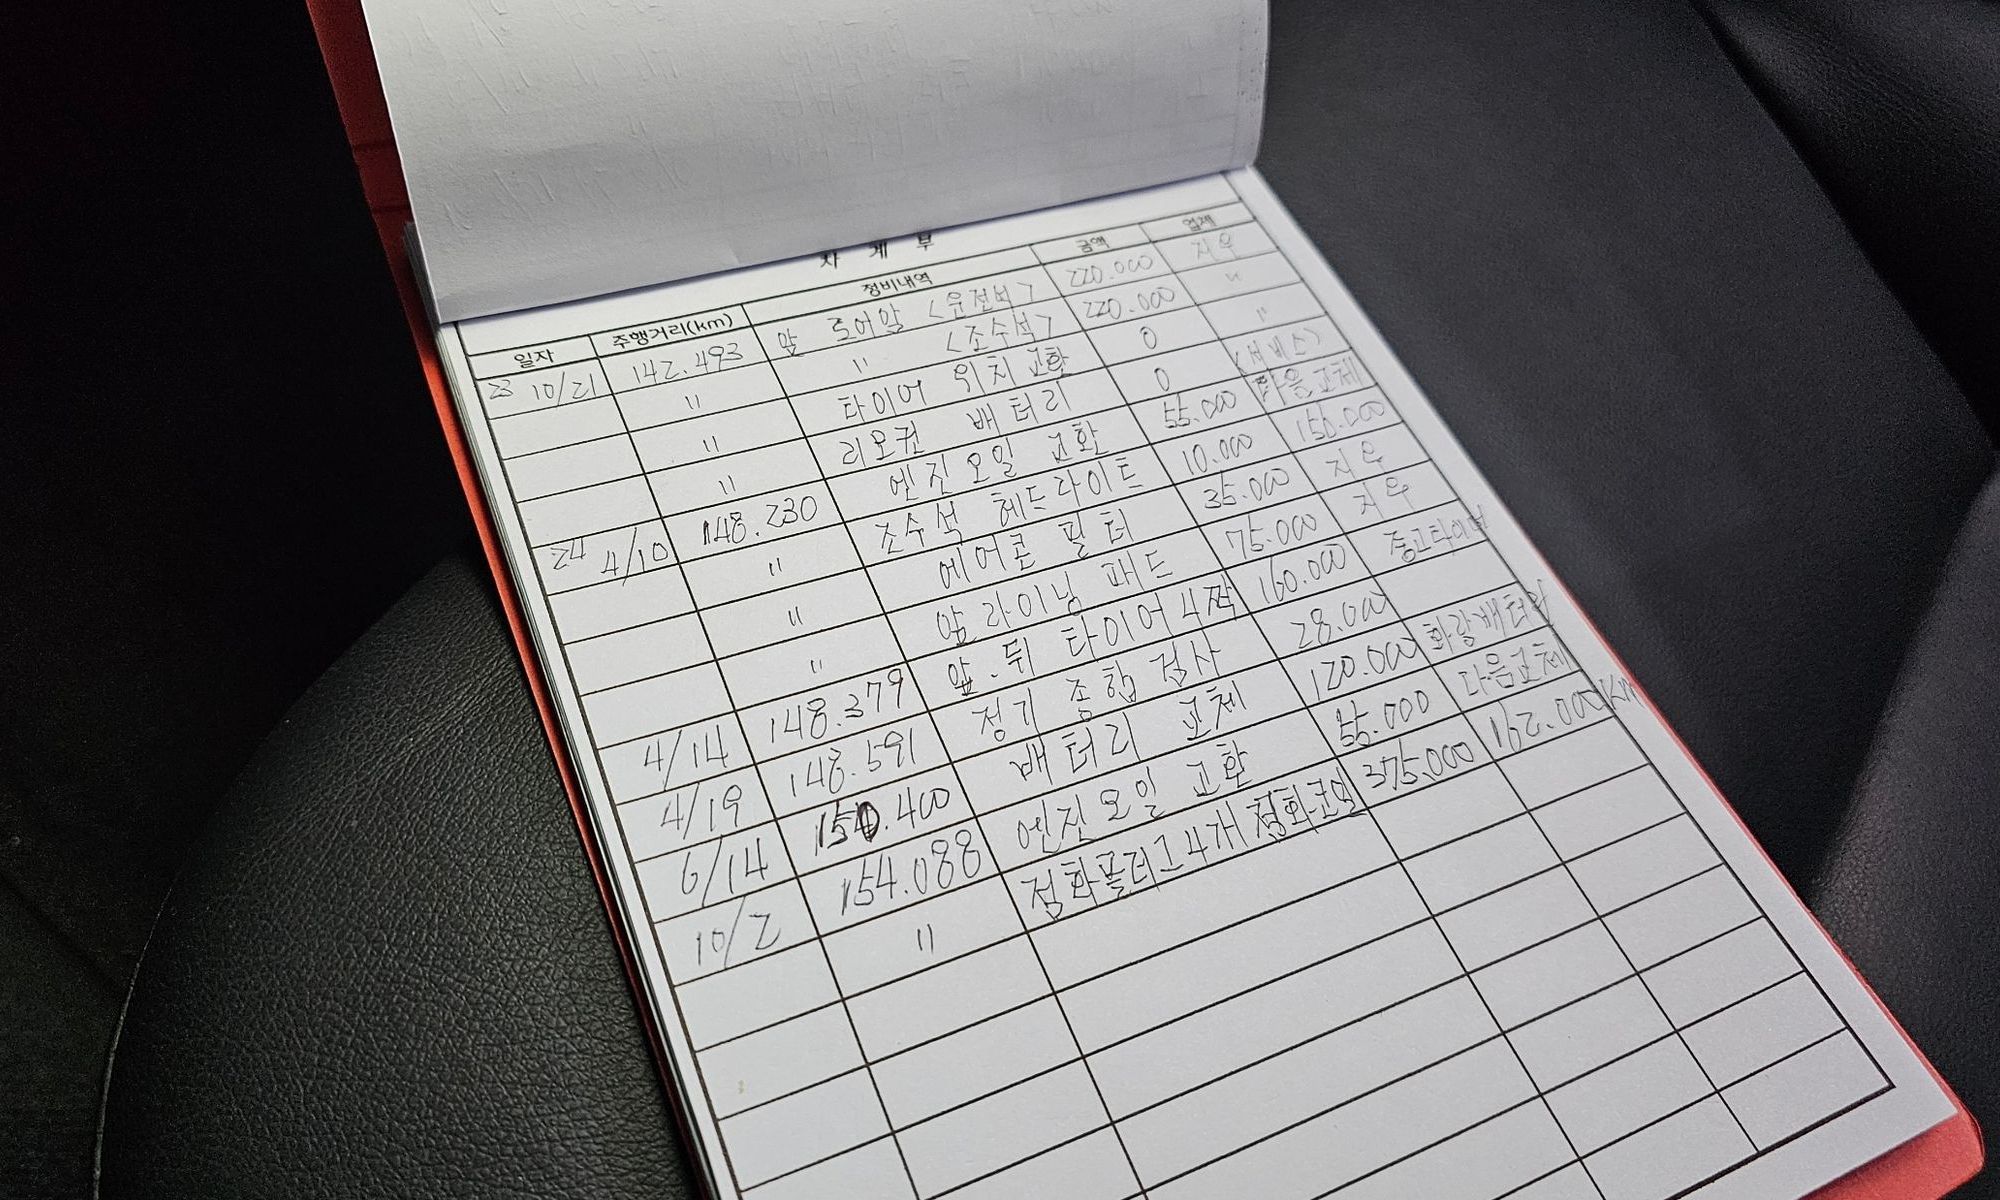 차 계 부
일자 주행거리(km) 정비내역 금액 업체
23 10/21 142.493 앞 로어암 <운전석> 220.000 지우
" " <조수석> 220.000 "
" 타이어 위치교환 0 "
" 리모컨 배터리 0 <서비스>
24 4/10 148.230 엔진오일 교환 55.000 다음교체
" 조수석 헤드라이트 10.000 156.000
" 에어콘 필터 35.000 지우
" 앞 라이닝 패드 75.000 지우
4/14 148.379 앞.뒤 타이어 4짝 160.000 중고타이어
4/19 148.591 정기 종합 검사 28.000
6/14 150.400 배터리 교체 120.000 화랑배터리
10/2 154.088 엔진오일 교환 55.000 다음교체
" 점화플러그 4개 점화코일 375.000 162.000KM